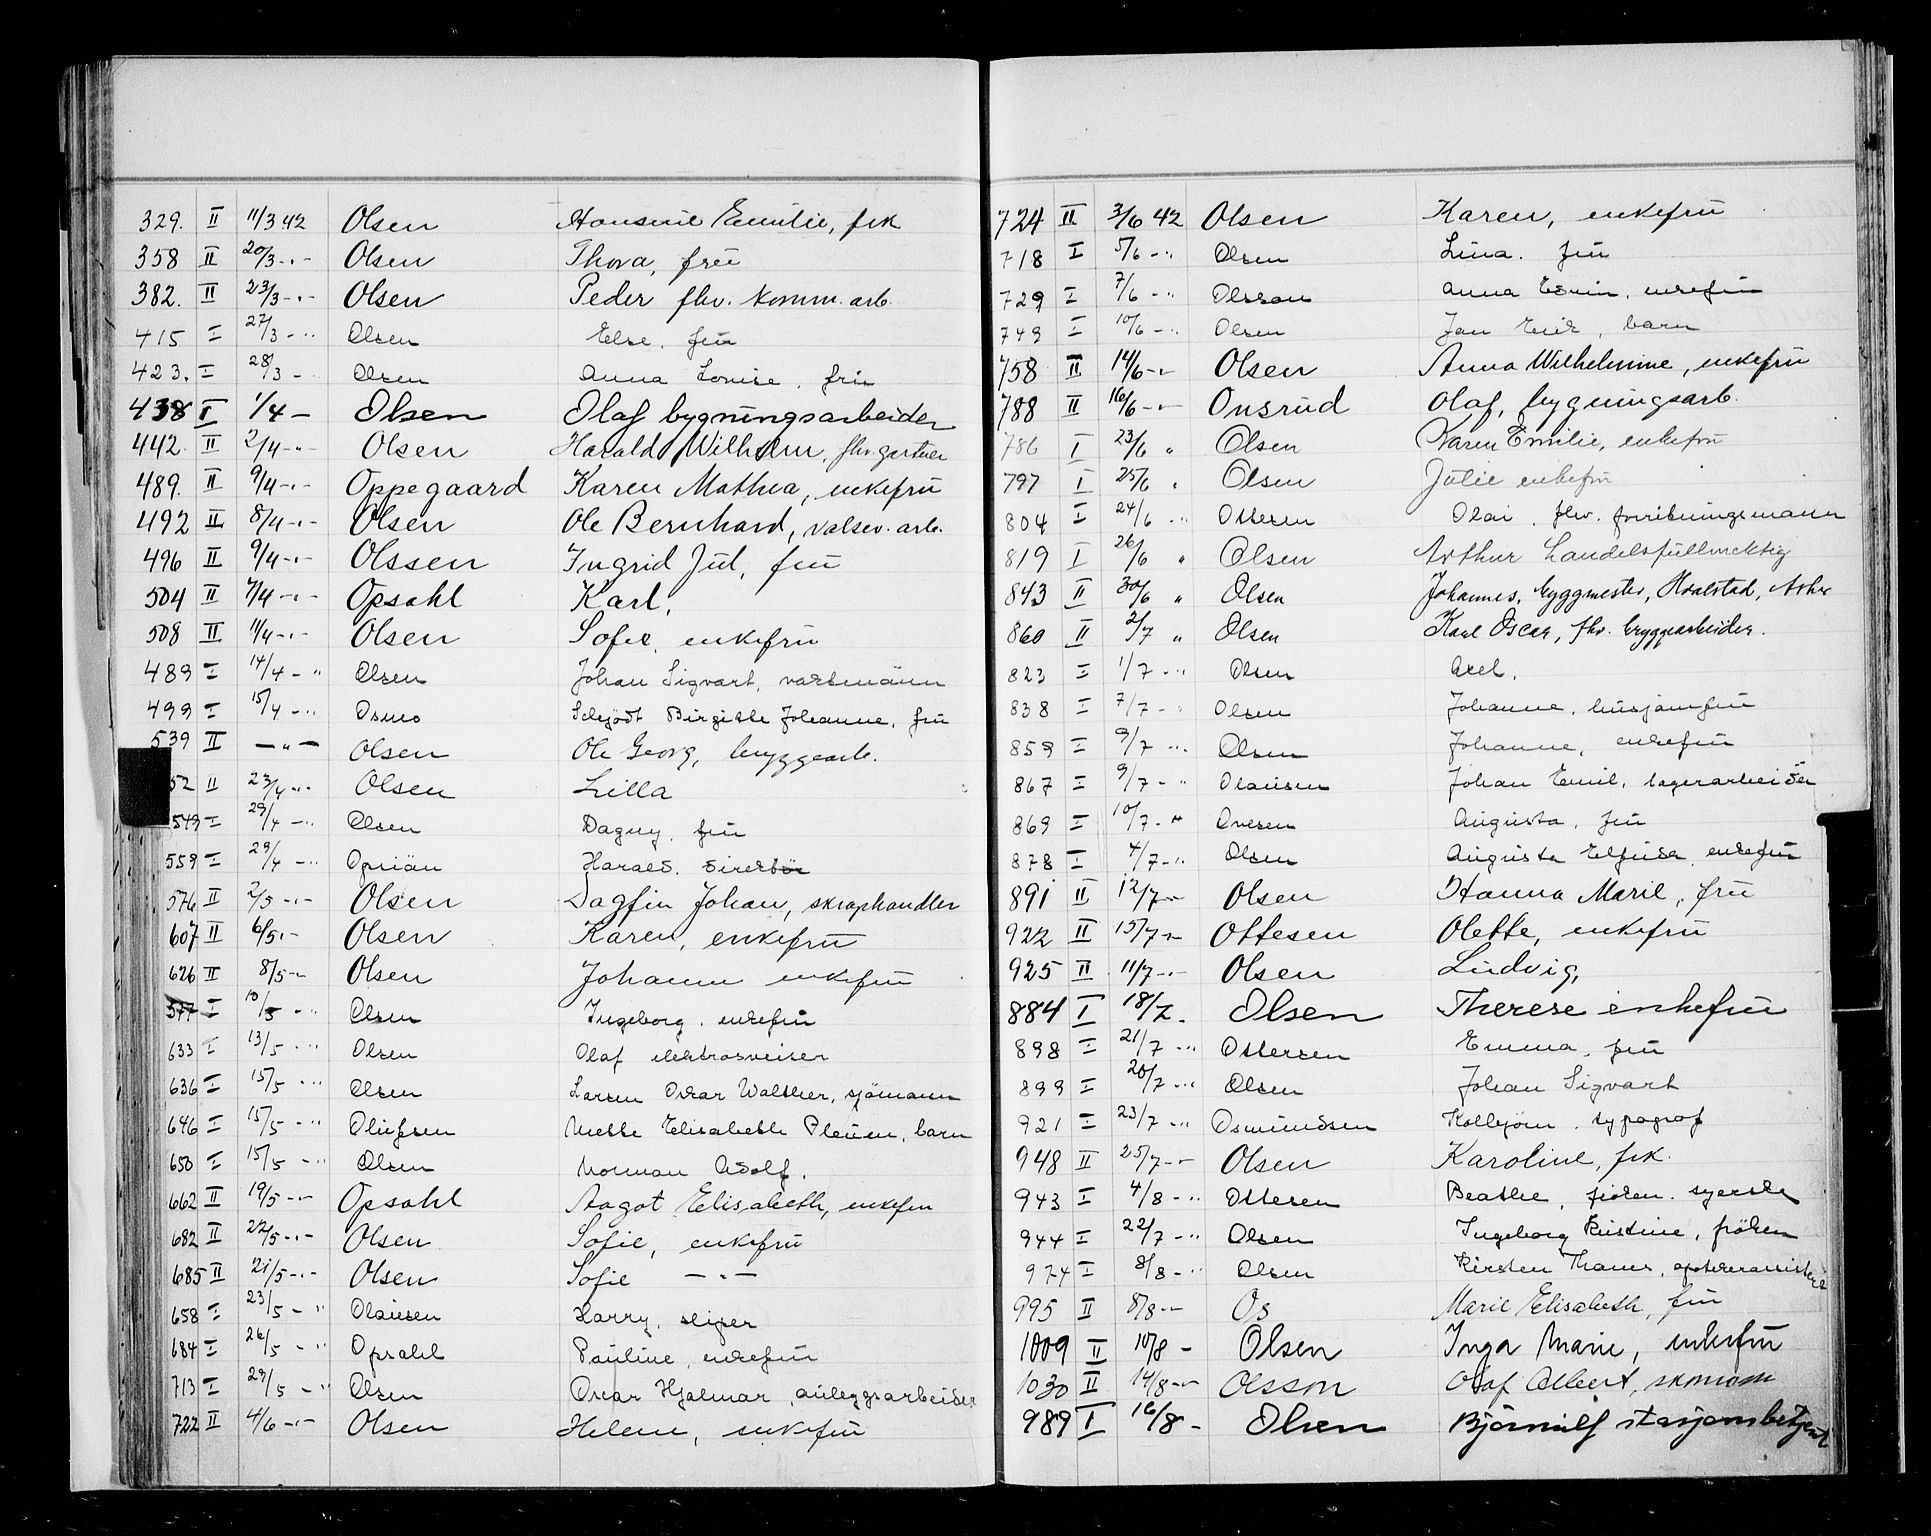 329. II 11/3 42 Olsen Hansine Emilie, frk
358 II 20/3 -"- Olsen Thora, frü
382. II 23/3 -"- Olsen Peder fhv. komm. arb.
415 I 27/3 -"- Olsen Else. frü
423. I 28/3 - Olsen Anna Lovise. frü
438 I 1/4 - Olsen Olaf bygningsarbeider
442. II 2/4 -"- Olsen Harald Wilhelm, fhv. gartner
489. II 9/4 -"- Oppegaard Karen Mathea, enkefrü
492 II 8/4 -"- Olsen Ole Bernhard, valsev. arb.
496 II 9/4 -"- Olssen Ingrid Jul, frü
504 II 7/4 -"- Opsahl Karl,
508 II 11/4 -"- Olsen Sofie, enkefrü
483 I 14/4 -" Olsen Johan Sigvart, vaktmann
499 I 15/4 -" Osmo Schjödt Birgitte Johanne, frü
539 II -"- Olsen Ole Georg, bryggearb.
52 II 23/4 -"- Olsen Lilla
549 I 29/4 -" Olsen Dagny, frü
559 I 29/4 -" Harald. direktör
576 II 2/5 -"- Olsen Dagfin Johan, skraphandler
607 II 6/5 -"- Olsen Karen, enkefrü
626 II 8/5 -"- Olsen Johanne enkefrü
577 I 10/5 -" Olsen Ingeborg. enkefrü
633 I 13/5 -" Olsen Olaf elektrosveiser
636 I 15/5 -" Olsen Larsen Oskar Walther, sjömann
646 I 15/5 -" Olufsen Mette Elisabeth barn
650 I 15/5 -" Olsen Norman Adolf.
662 II 19/5 -"- Opsahl Aagot Elisabeth, enkefru
682 II 22/5 -"- Olsen Sofie, enkefrü
685 II 21/5 -"- Olsen Sofie -"-
658 I 23/5 -" Olausen Harry, sliper
684 I 26/5 -" Opsahl Pauline, enkefrü
713 I 29/5 -" Olsen Oscar Hjalmar, anleggsarbeider
722 II 4/6 -"- Olsen Helene, enkefrü
724 II 3/6 42 Olsen Karen, enkefrü
718 I 5/6 -" Olsen Lina. frü
729 I 7/6 -" Olsson Anna enkefrü
749 I 10/6 -" Olsen Jan Erik, barn
758 II 14/6 -"- Olsen Anna Wilhelmine, enkefrü
788 II 16/6 -"- Onsrud Olaf, bygningsarb.
786 I 23/6 " Olsen Karen Emilie, enkefrü
797 I 25/6 " Olsen Julie enkefrü
804 I 24/6 -" Ottesen Olai, fhv. forretningsmann
819 I 26/6 " Olsen Arthur handelsfullmektig
843 II 30/6 " Olsen Johannes, byggmester, Hvalstad, Asker
860 II 2/7 " Olsen Karl Oscar, fhv. bryggearbeider.
823 I 1/7 -" Olsen Axel.
838 I 7/7 -" Olsen Johanne, husjomfru
859 I 9/7 -" Olsen Johanne, enkefrü
867 I 9/7 -" Olausen Johan Emil, lagerarbeider
869 I 10/7 -" Ovesen Augusta, frü
878 I 4/7 -" Olsen Augusta enkefrü
891 II 12/7 -"- Olsen Hanna Marie, frü
922 II 15/7 -"- Ottesen Olette, enkefrü
925 II 11/7 -"- Olsen Ludvig,
884 I 18/7. Olsen Therese enkefrü
898 I 21/7 -" Ottersen Emma, frü
899 I 20/7 -" Olsen Johan Sigvart
921 I 23/7 -" Osmundsen Kolbjörn. typograf
948 II 25/7 -"- Olsen Karoline, frk.
943 I 4/8 -" Ottesen Beathe, syerske
944 I 22/7 -" Olsen Ingeborg Kristine, fröken
974 I 8/8 -" Olsen Kirsten
995 II 8/8 -"- Os Marie Elisabeth, frü
1009 II 10/8 - Olsen Inga Marie, enkefrü
1030 II 14/8 -"- Olsson Olaf Albert,
989 I 16/8 - Olsen Björnulf stasjonsbetjent